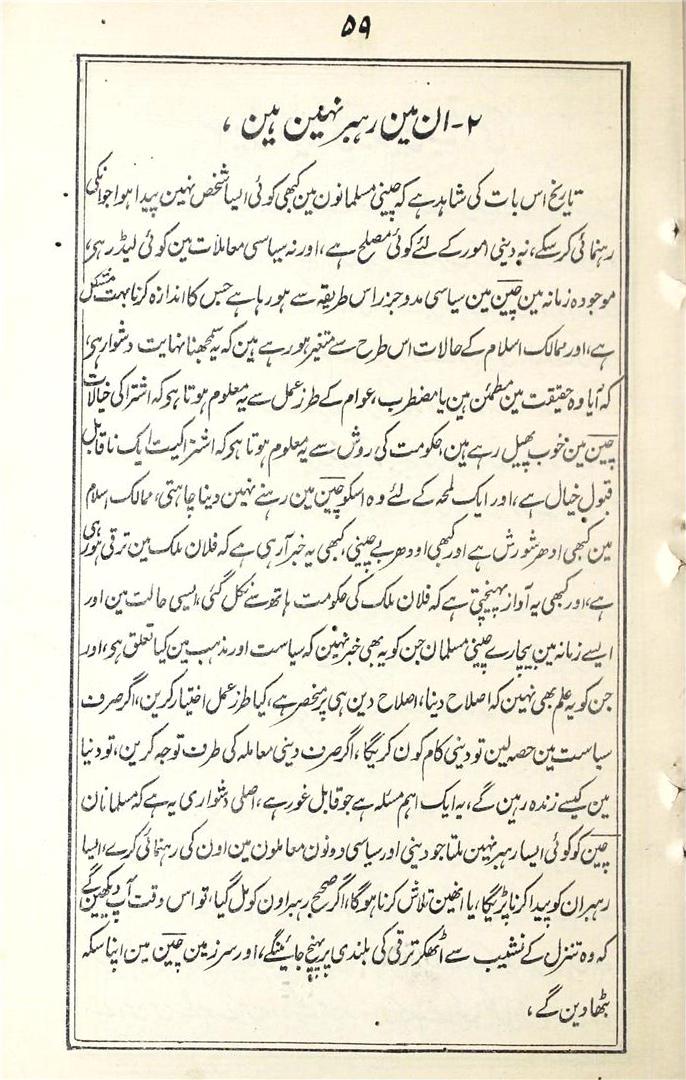 ۵۹
۲- ان مین رہبر نہین ہین ،
تاریخ اس بات کی شاہد ہے کہ چینی مسلمانون مین کبھی کوئی ایسا شخص نہین پیدا ہوا جو انکی
رہنمائی کر سکے، نہ دینی امور کے لئے کوئی مصلح ہے، اور نہ سیاسی معاملات مین کوئی لیڈر رہی،
موجودہ زمانہ مین چین مین سیاسی مدوجزر اس طریقہ سے ہو رہا ہے جس کا اندازہ کرنا بہت مشکل
ہے، اور ممالک اسلام کے حالات اس طرح سے متغیر ہو رہے ہین کہ یہ سمجھنا نہایت دشوار ہی،
کہ آیا وہ حقیقت مین مطمئن ہین یا مضطرب، عوام کے طرز عمل سے یہ معلوم ہوتا ہو کہ اشتراکی خیالات
چین مین خوب پھیل رہے ہین، حکومت کی روش سے یہ معلوم ہوتا ہو کہ اشتراکیت ایک ناقابل
قبول خیال ہے، اور ایک لمحہ کے لئے وہ اسکو چین مین رہنے نہین دینا چاہتی، ممالک اسلام
مین کبھی ادھر شورش ہے اور کبھی اودھر بے چینی، کبھی یہ خبر آرہی ہے کہ فلان ملک مین ترقی ہو رہی
ہے، اور کبھی یہ آواز پہنچتی ہے کہ فلان ملک کی حکومت ہاتھ سے نکل گئی، ایسی حالت مین اور
ایسے زمانہ مین بیچارے چینی مسلمان جن کو یہ بھی خبر نہین کہ سیاست اور مذہب مین کیا تعلق ہو، اور
جن کو یہ علم بھی نہین کہ اصلاح دینا، اصلاح دین ہی پر منحصر ہے، کیا طرز عمل اختیار کرین، اگر صرف
سیاست مین حصہ لین تو دینی کام کون کریگا، اگر صرف دینی معاملہ کی طرف توجہ کرین، تو دنیا
مین کیسے زندہ رہین گے، یہ ایک اہم مسئلہ ہے جو قابل غور ہے، اصلی دشواری یہ ہے کہ مسلمانان
چین کو کوئی ایسا رہبر نہین ملتا جو دینی اور سیاسی دونون معاملون مین اون کی رہنمائی کرے، ایسا
رہبر ان کو پیدا کرنا پڑیگا، یا انھین تلاش کرنا ہوگا، اگر صحیح رہبر اون کو مل گیا، تو اس وقت آپ دیکھین گے
کہ وہ تنزل کے نشیب سے اٹھکر ترقی کی بلندی پر پہنچ جائینگے، اور سرزمین چین مین اپنا سکہ
بٹھا دین گے ،